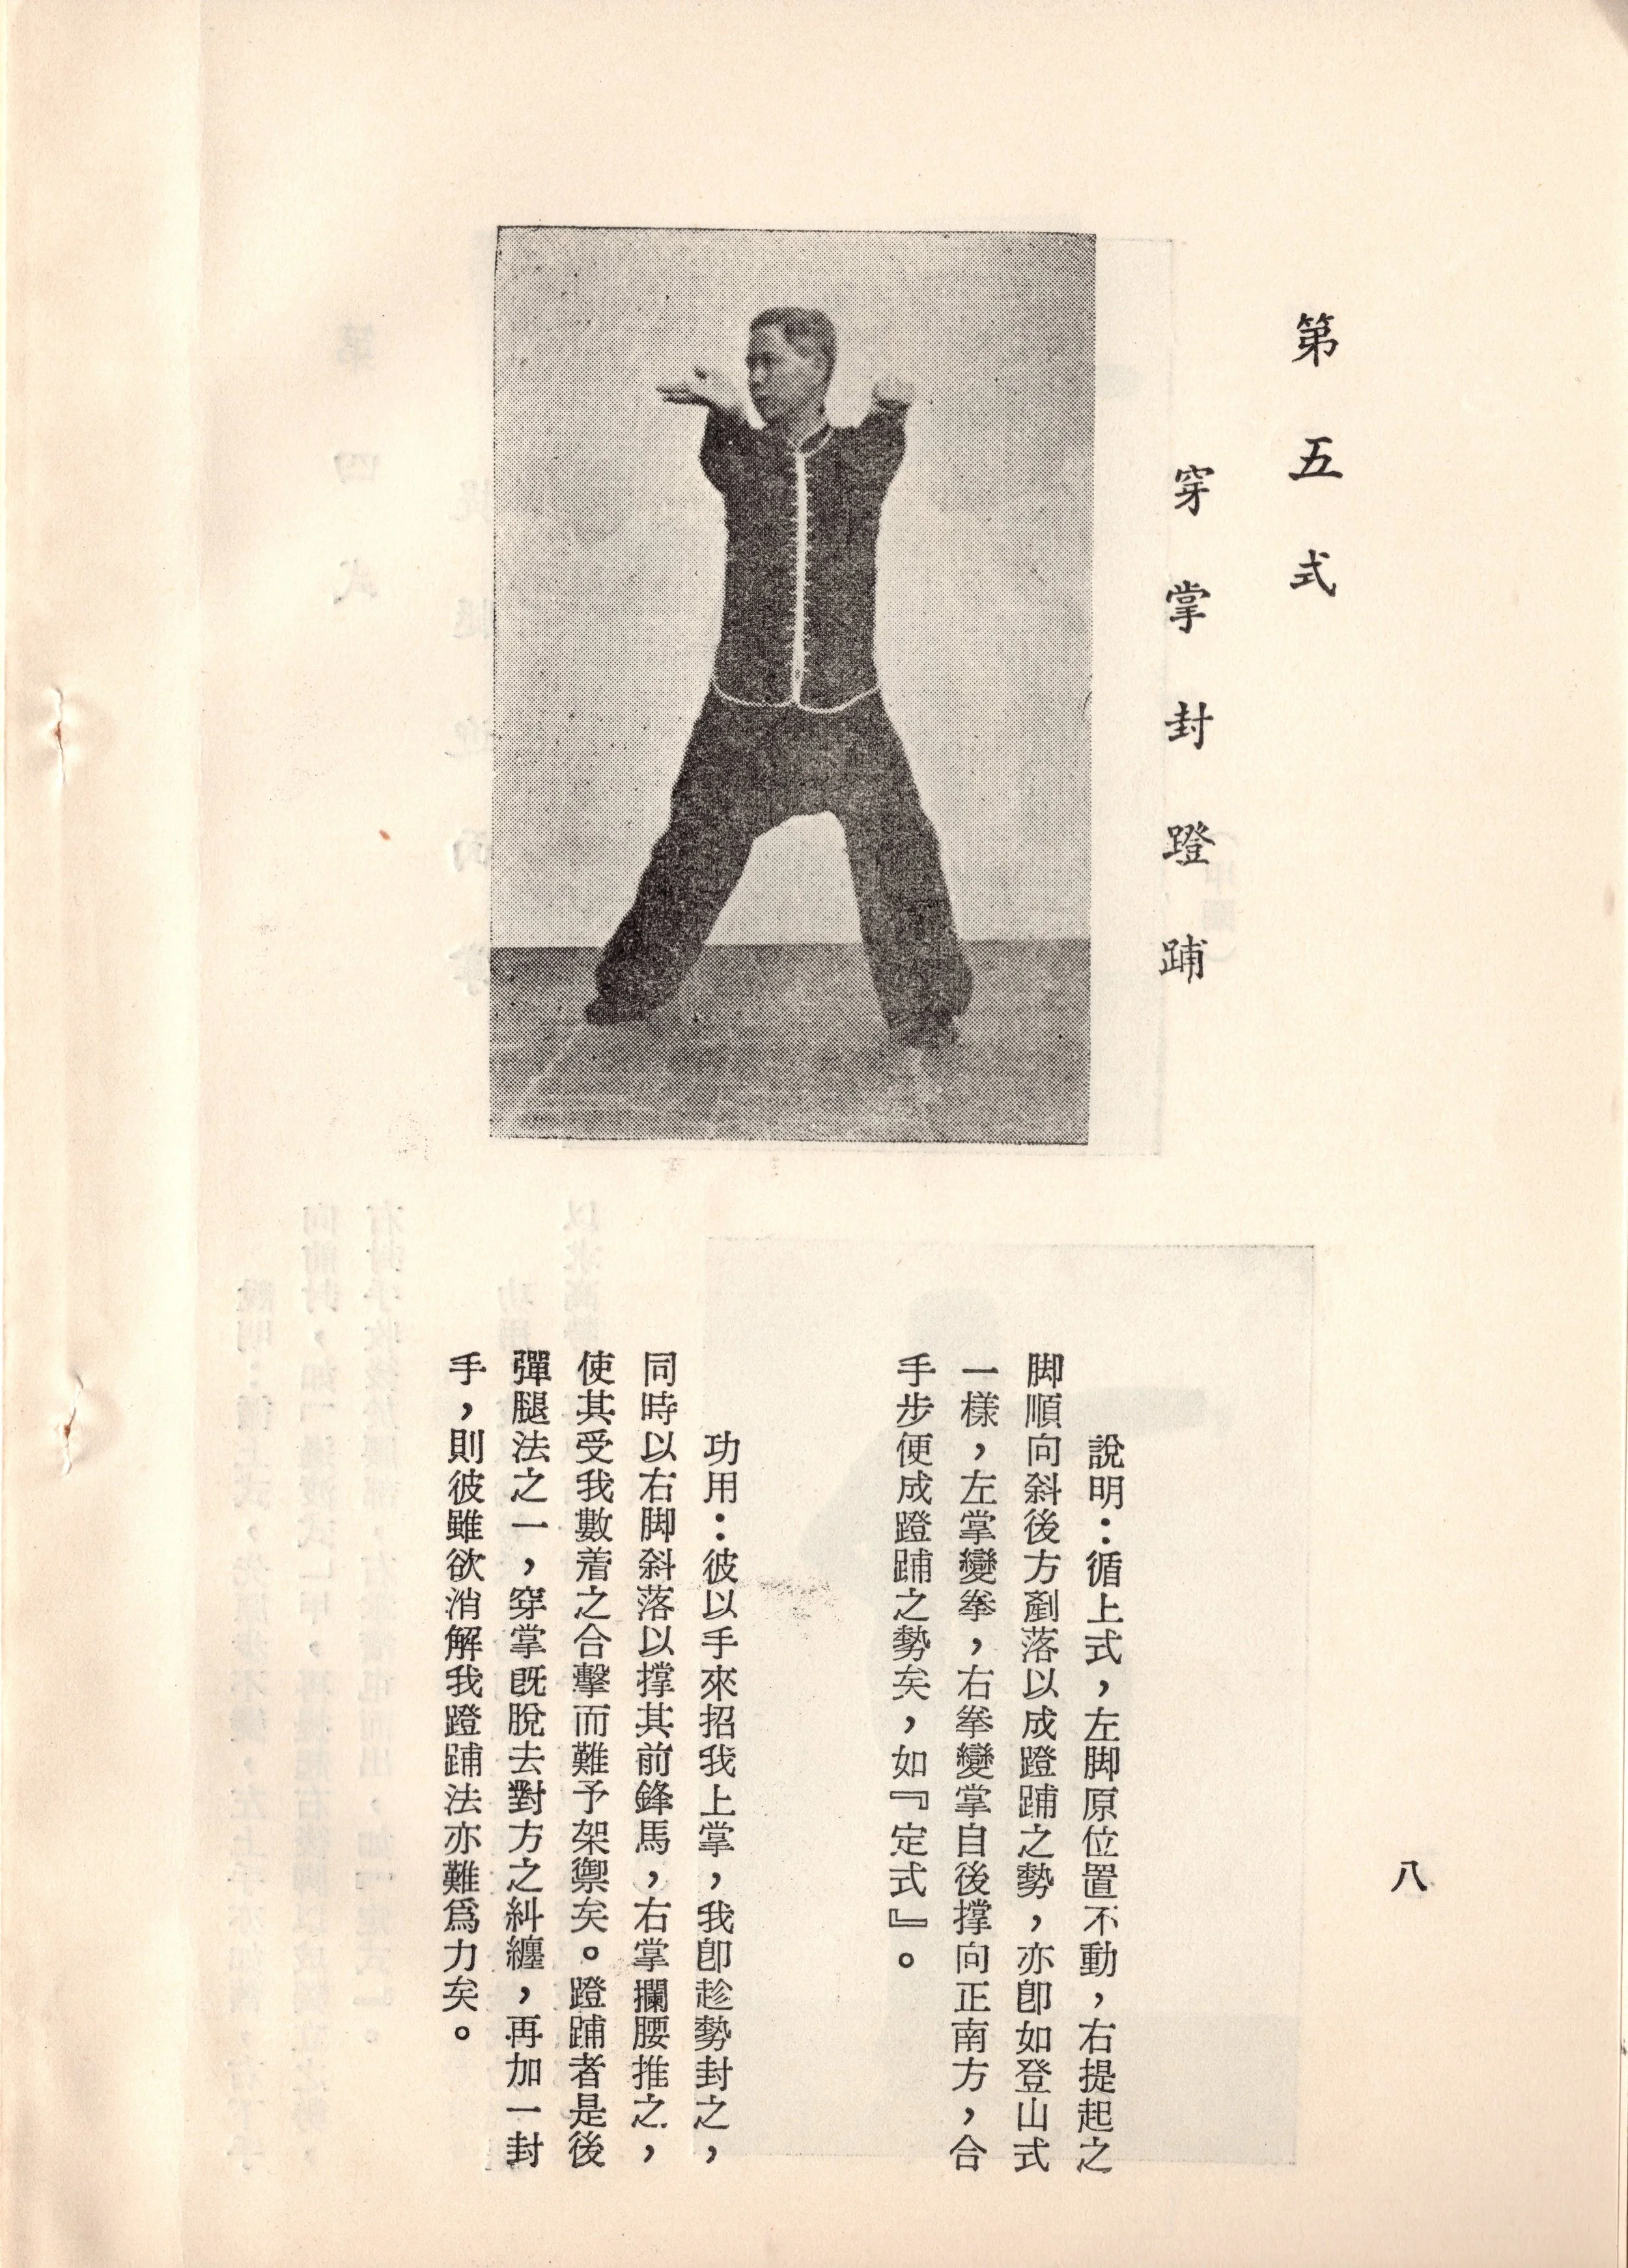 第五式
穿掌封蹬踊
說明：循上式，左脚原位置不動，右提起之
脚順向斜後方剷落以成蹬踊之勢，亦卽如登山式
一樣，左掌變拳，右拳變掌自後撑向正南方，合
手步便成蹬踊之勢矣，如『定式』。
功用：彼以手來招我上掌，我卽趁勢封之，
同時以右脚斜落以撑其前鋒馬，右掌攔腰推之，
使其受我數着之合擊而難予架禦矣。蹬踊者是後
彈腿法之一，穿掌旣脫去對方之糾纏，再加一封
手，則彼雖欲消解我蹬踊法亦難爲力矣。
八